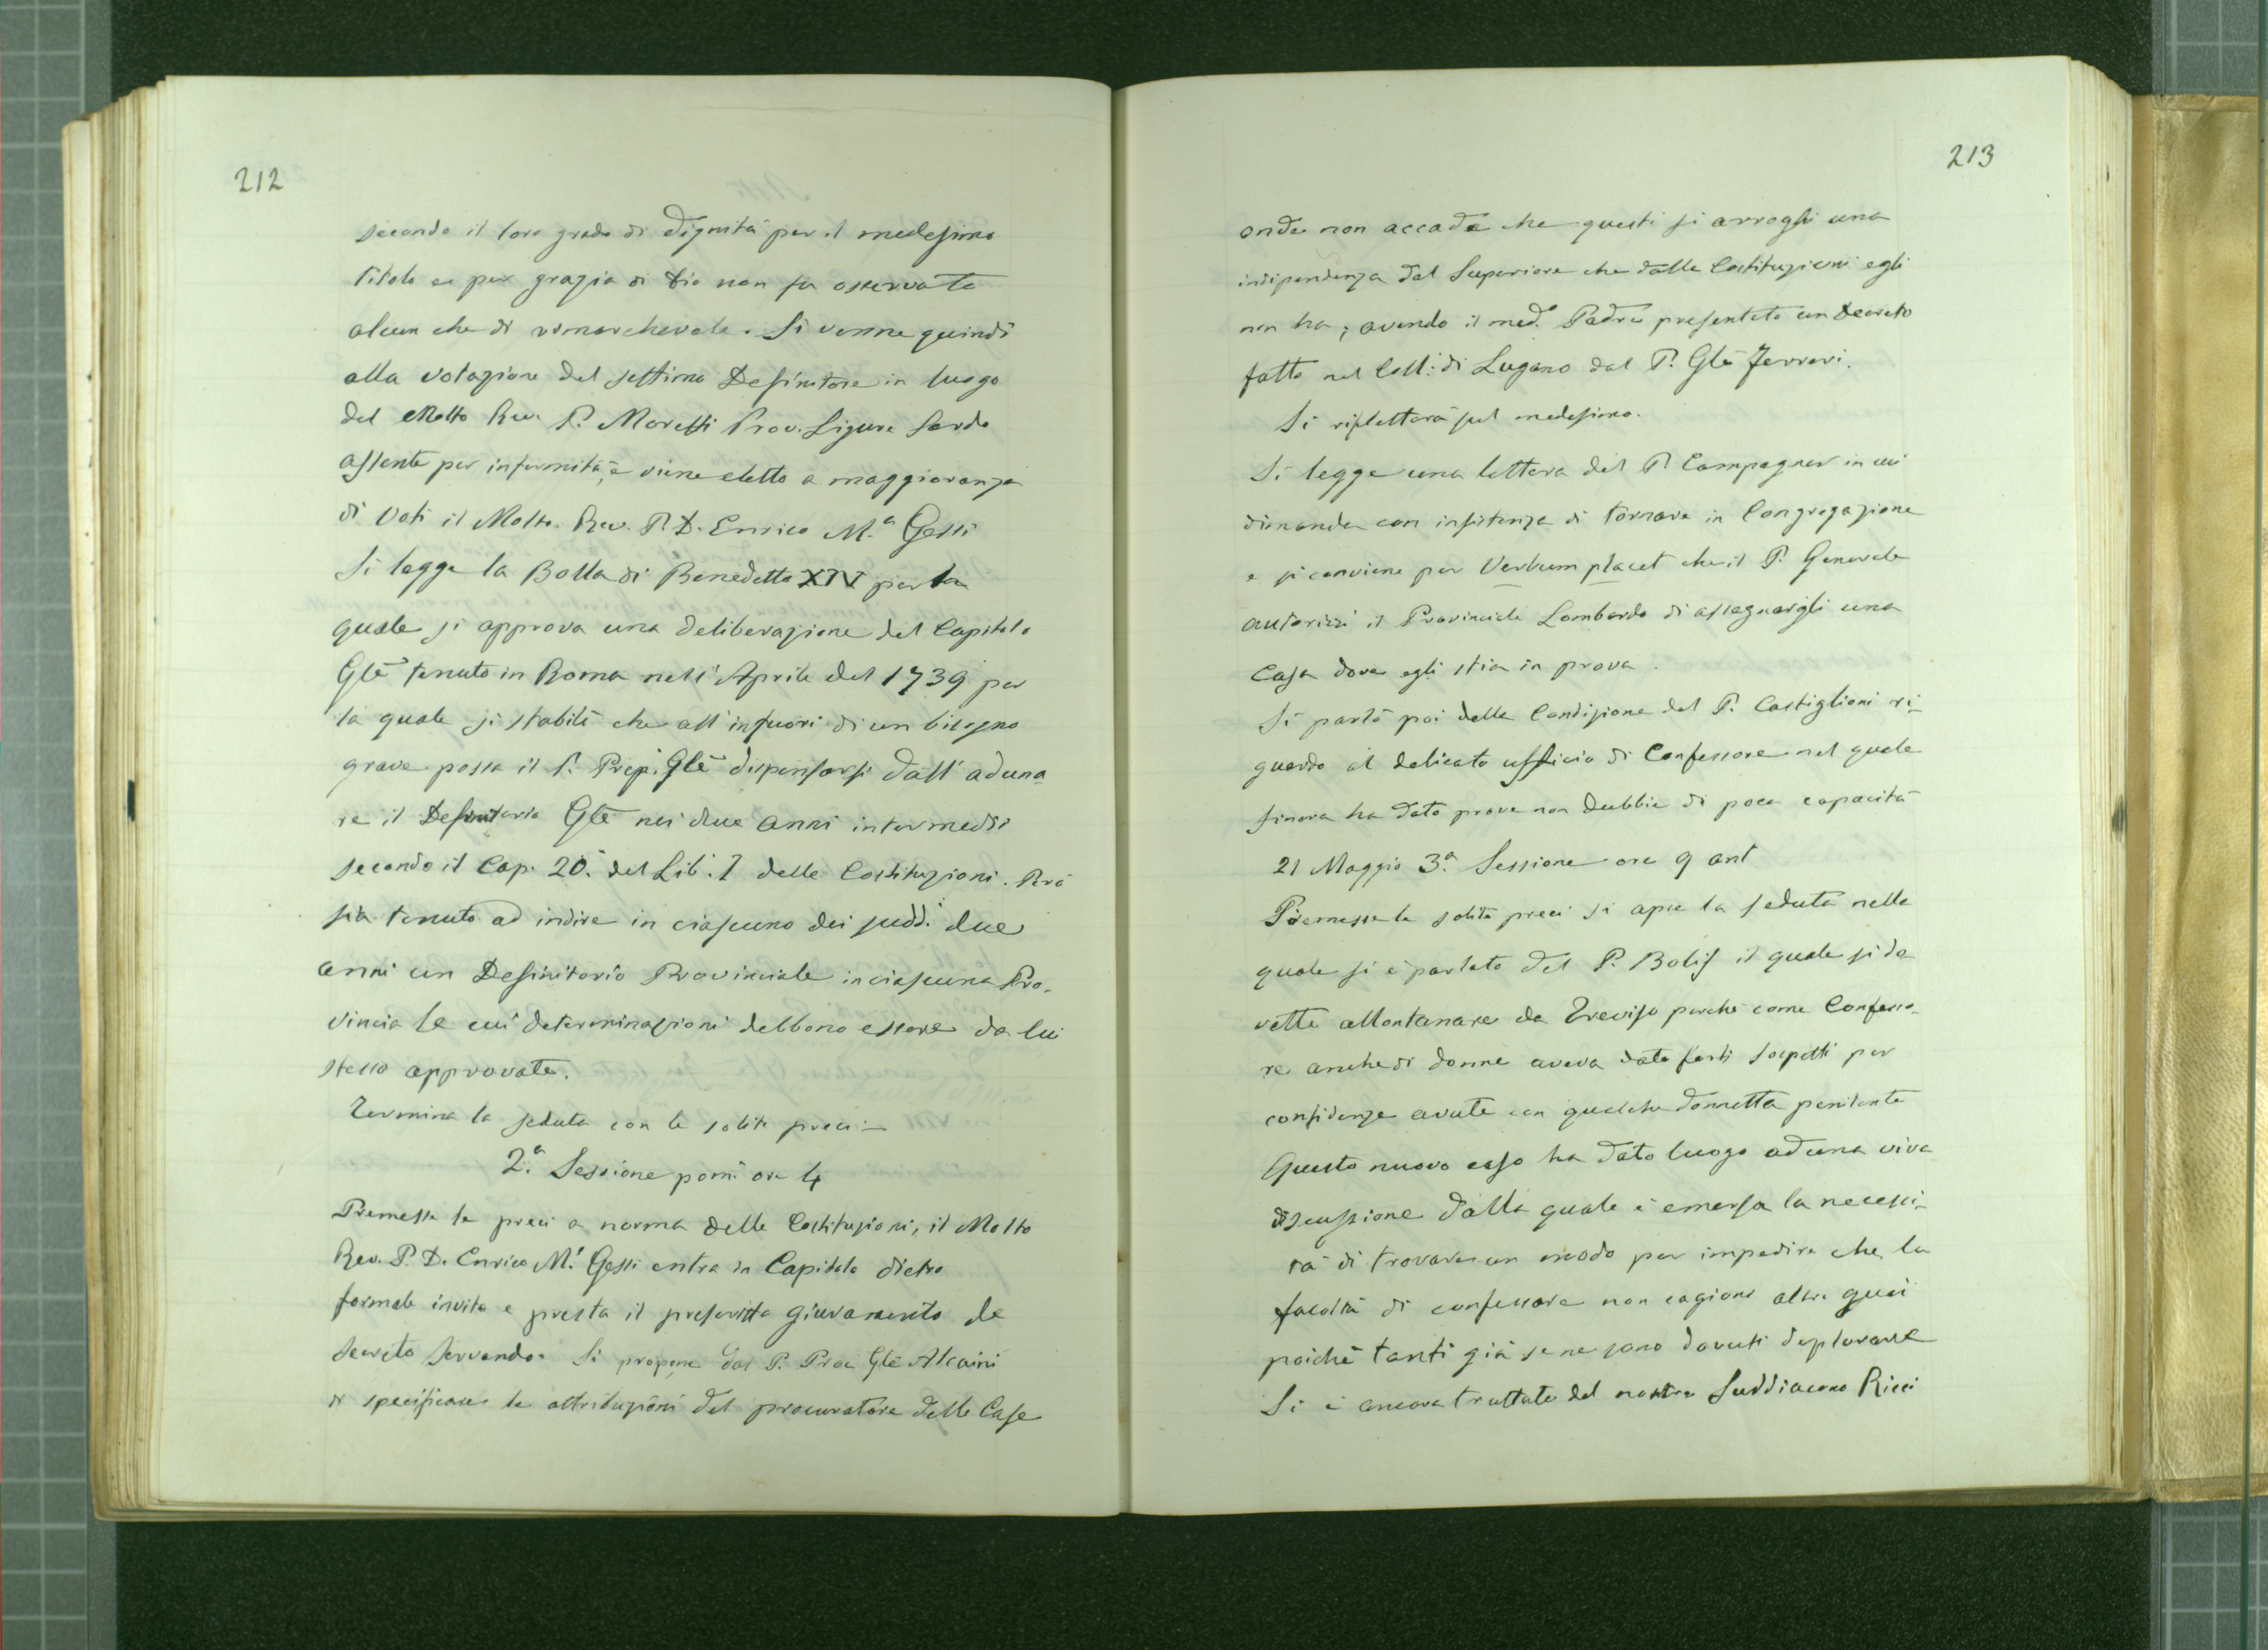 212
secondo il loro grado di dignità per il medesimo
titolo e per grazia di Dio non fu osservato
alcun che di rimarchevole. Si venne quindi
alla votazione del settimo Definitore in luogo
del Molto Rev. P. Moretti Prov. Ligure Sardo
assente per infermità, e viene eletto a maggioranza
di Voti il Molto Rev. P. D. Enrico M.ª Gessi
Si legge la Bolla di Benedetto XIV per la
quale si approva una deliberazione del Capitolo
Glē tenuto in Roma nell'Aprile del 1739 per
la quale si stabilì che all'infuori di un bisogno
grave possa il P. Prep. Glē dispensarsi dall'aduna
re il Definitorio Glē nei due anni intermedi
secondo il Cap. 20. del Lib. I delle Costituzioni. Però
sia tenuto ad indire in ciascuno dei sudd. due
anni un Definitorio Provinciale in ciascuna Pro-
vincia le cui determinazioni debbono essere da lui
stesso approvate.
Termina la seduta con le solite preci -
2.ª Sessione pom. ore 4
Premesse le preci a norma delle Costituzioni, il Molto
Rev. P. D. Enrico M.ª Gessi entra in Capitolo dietro
formale invito e presta il prescritto giuramento de
secreto servando. Si propone dal P. Proc Glē Alcaini
di specificare le attribuzioni del procuratore delle Case
213
onde non accada che questi si arroghi una
indipendenza dal Superiore che dalle Costituzioni egli
non ha; avendo il med.º Padre presentato un Decreto
fatto nel Coll: di Lugano dal P. Glē Ferreri.
Si rifletterà sul medesimo.
Si legge una lettera del P. Campagner in cui
dimanda con insistenza di tornare in Congregazione
e si conviene per Verbum placet che il P. Generale
autorizzi il Provinciale Lombardo di assegnargli una
Casa dove egli stia in prova.
Si parlò poi della Condizione del P. Castiglioni ri-
guardo al delicato ufficio di Confessore nel quale
finora ha dato prove non dubbie di poca capacità
21 Maggio 3.ª Sessione ore 9 ant
Premesse le solite preci si apre la seduta nella
quale si è parlato del P. Bolis il quale si do
vette allontanare da Treviso perché come Confesso-
re anche di donne aveva dato forti sospetti per
confidenze avute con qualche donnetta penitente
Questo nuovo caso ha dato luogo ad una viva
discussione dalla quale è emersa la necessi-
tà di trovare un modo per impedire che la
facoltà di confessare non cagioni altri guai
poiché tanti già se ne sono dovuti deplorare
Si è ancora trattato del nostro Suddiacono Ricci